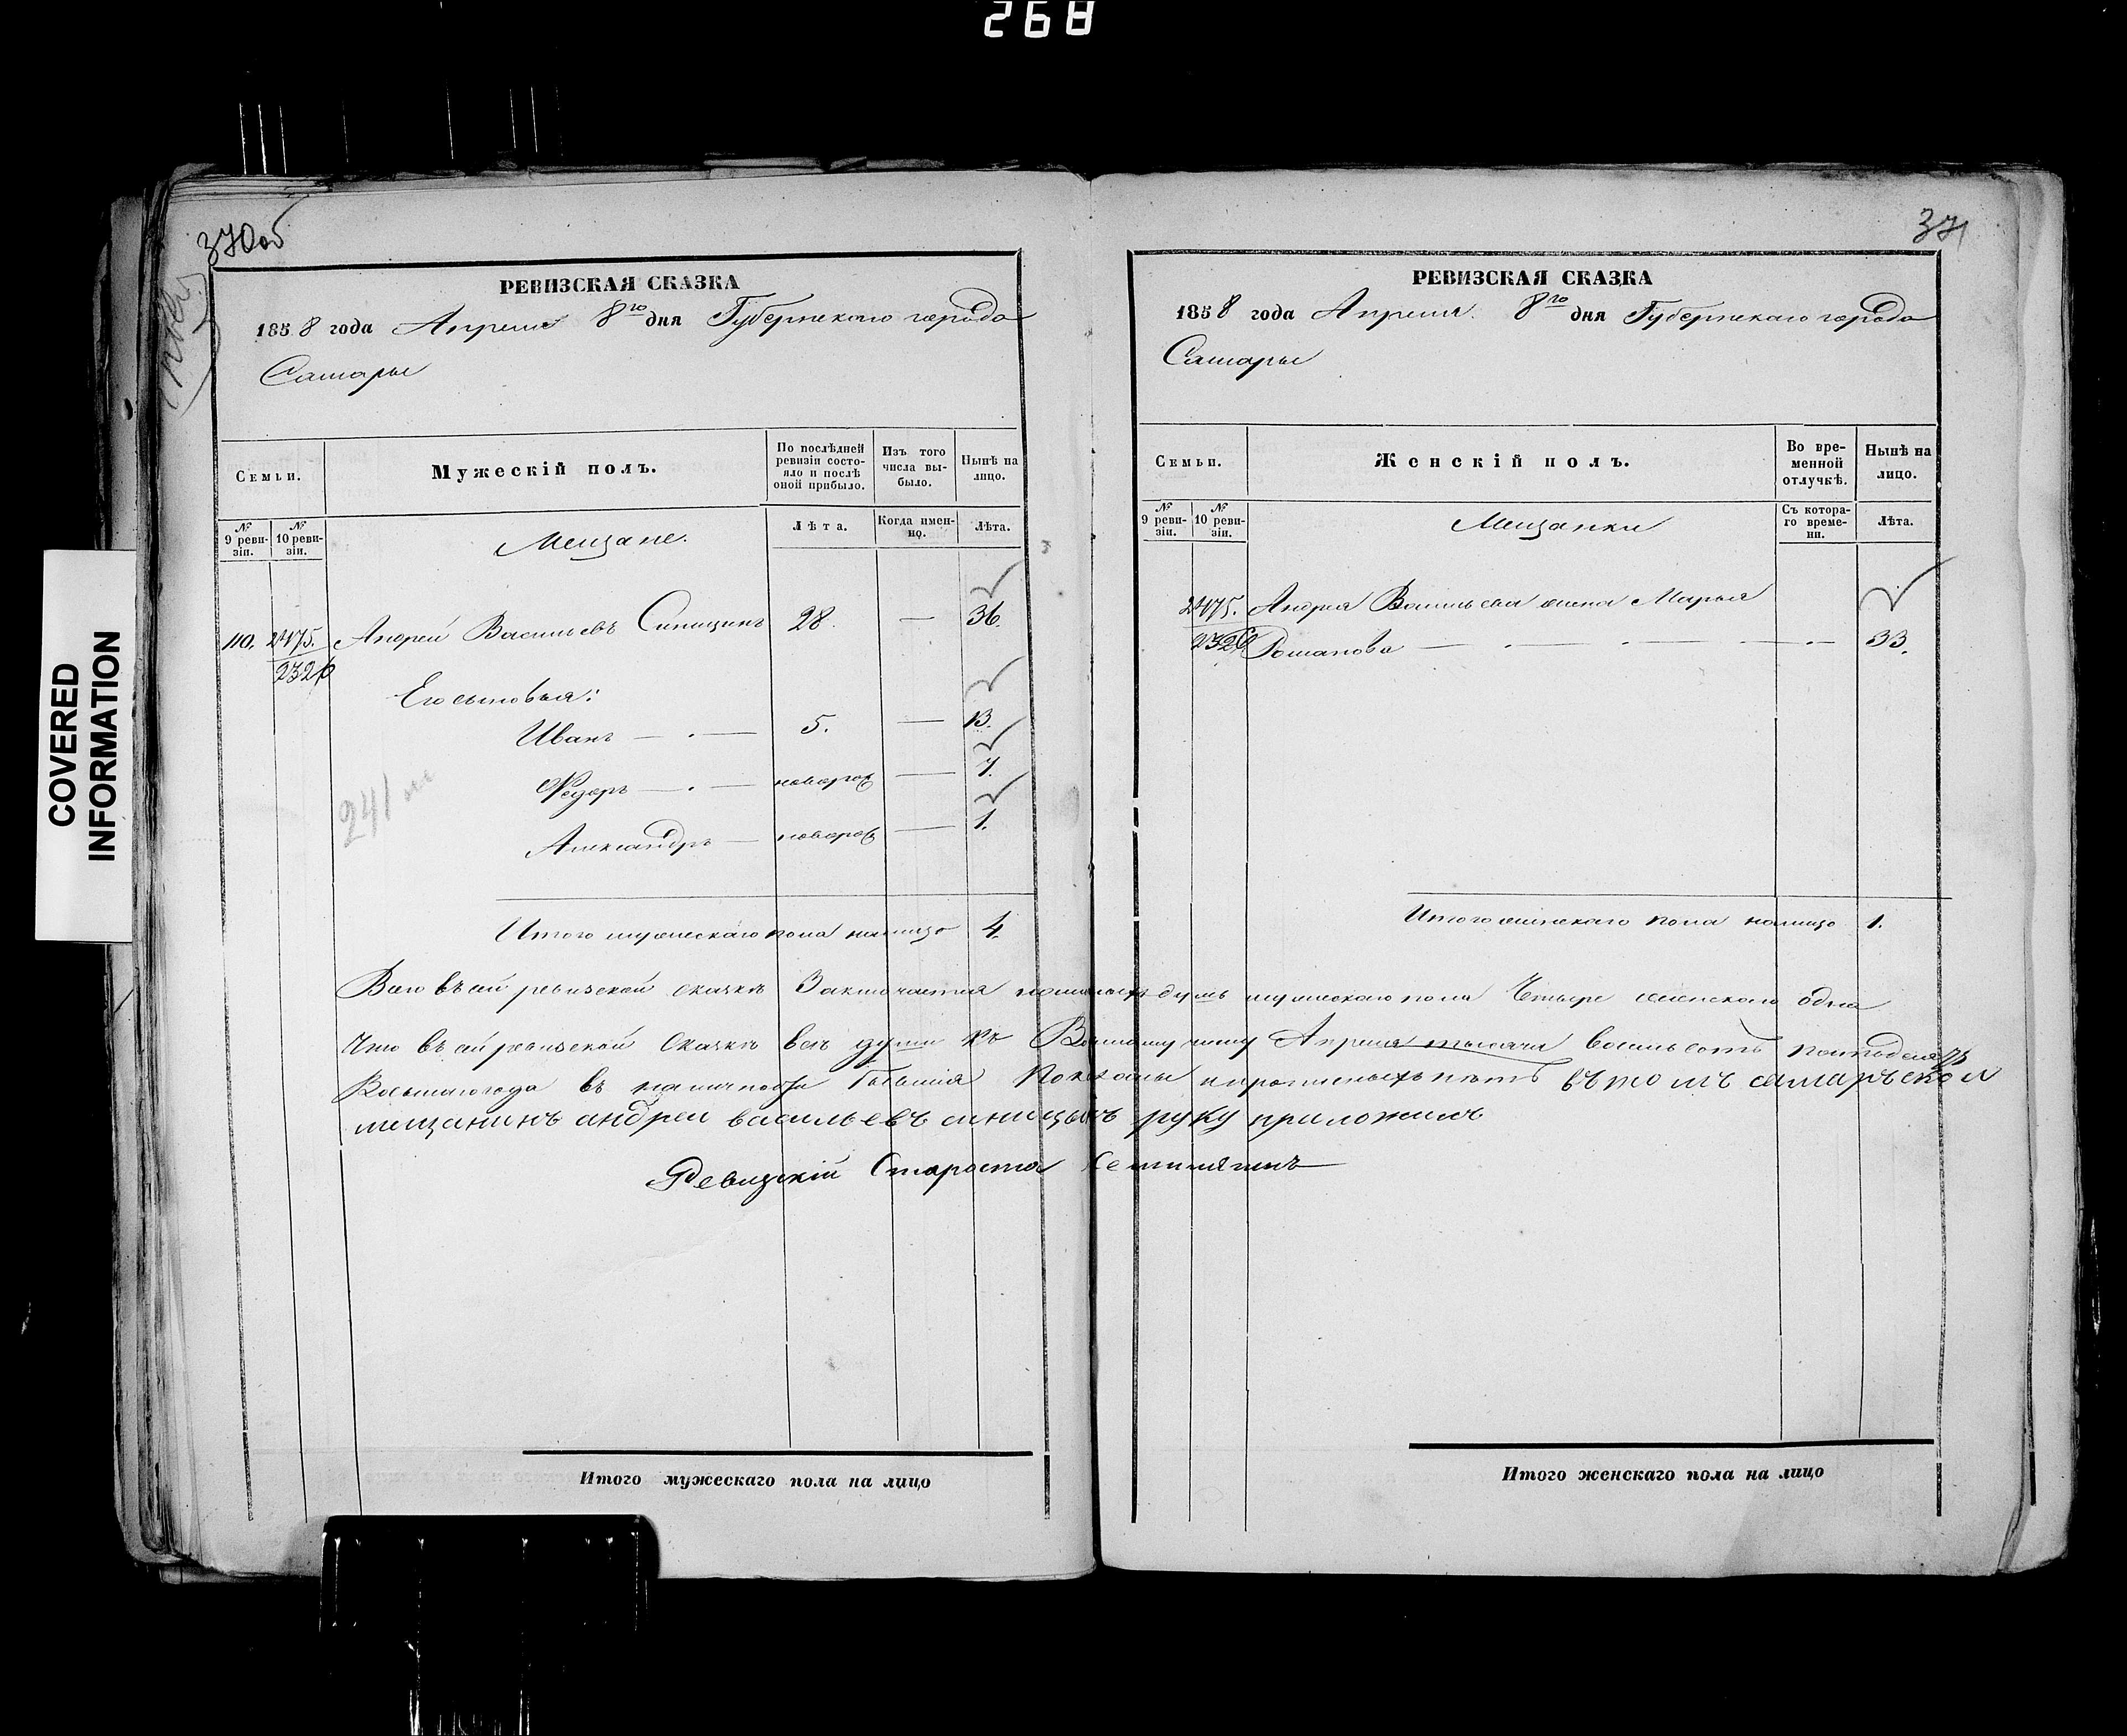 268
370об
РЕВИЗСКАЯ СКАЗКА
1858 года Апреля 8го дня Губернскаго города
Самары
Семьи.
Мужескій полъ.
По послѣдней ревизіи состояло и послѣ оной прибыло.
Изъ того числа выбыло.
Нынѣ на лицо.
№ 9 ревизіи.
№ 10 ревизіи.
Мещане.
Лѣта.
Когда именно.
Лѣта.
110. 2475. Андрей Васильевъ Синицынъ 28. — 36.
2326
Его сыновья:
Иванъ — . — 5. — 13.
Федоръ — . — новорож — 7.
241
Александръ — новорож — 1.
Итого мужескаго пола налицо 4.
371
РЕВИЗСКАЯ СКАЗКА
1858 года Апреля. 8го дня Губернскаго города
Самары
Семьи.
Женскій полъ.
Во временной отлучкѣ.
Нынѣ на лицо.
№ 9 ревизіи.
№ 10 ревизіи.
Мещанки
Съ котораго времени.
Лѣта.
2475. Андрея Васильева жена Марья
2326 Романова — . — . — . — 33.
Итого женскаго пола налицо 1.
Всего въ сей ревизской сказкѣ Заключается душъ мужескаго пола Четыре женскаго одна
Что въ сей ревизской Сказкѣ все души къ Восьмому числу Апреля тысяча восемьсотъ пятьдесятъ
Восьмаго года въ Бывшія показаны и прописныхъ нетъ въ томъ самаръской
мещанинъ андреи васильевъ синицынъ руку приложилъ
Ревизскій Староста
Итого мужескаго пола на лицо
Итого женскаго пола на лицо
COVERED
INFORMATION